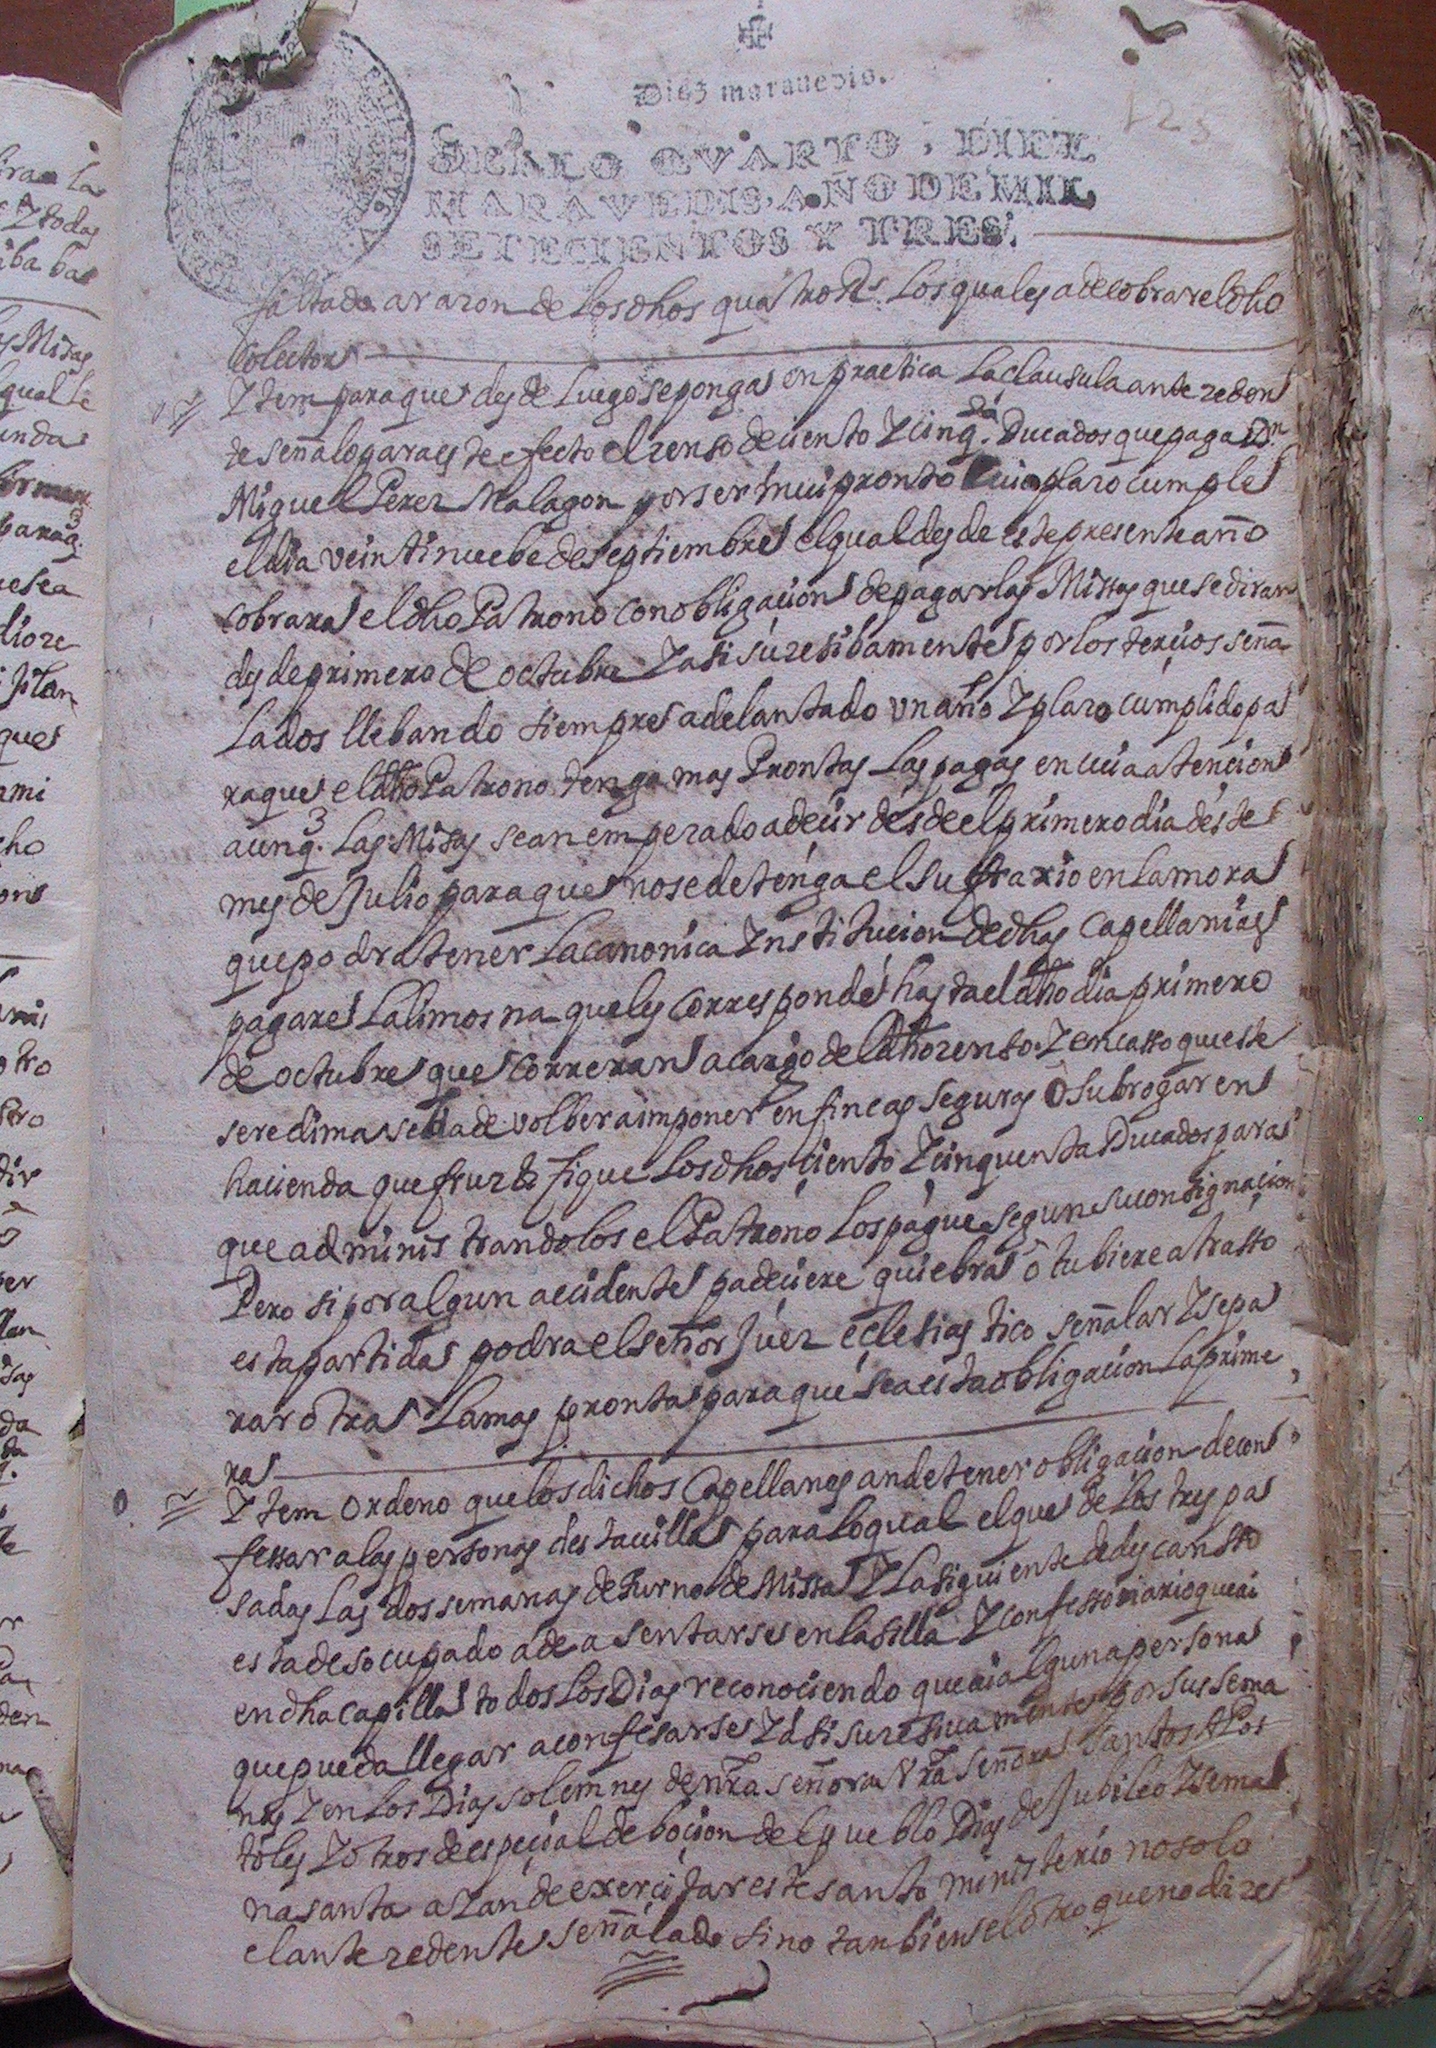 Diez maravedis.
123
SELLO QVARTO, DIEZ
MARAVEDIS, AÑO DE MIL
SETECIENTOS Y TRES.
faltado a razon de los dhos quatro Rs. los quales a de cobrar el dho
Colector
Ytem para que desde luego se ponga en practica la clausula antezeden
te señalo para este efecto el zenso de ciento Y cinqta. Ducados que paga Dn
Miguel Perez Malagon por ser mui pronto Cuio plazo cumple
el dia veintinuebe de septiembre el qual desde este presente año
cobrara el dho Patrono con obligacion de pagar las Missas que se diran
desde primero de octubre Y asi suzesibamente por los tercios seña
lados llebando siempre adelantado un año Y plazo cumplido pa
ra que el dho Patrono tenga mas Prontas las pagas en cuia atencion
aunq. las Misas se an empezado a decir desde el primero dia deste
mes de Julio para que no se detenga el sufraxio en la mora
que podra tener la canonica Ynstitucion de dhas Capellanias
pagare la limosna que les corresponde hasta el dho dia primero
de octubre que correran a cargo del dho zenso. Y en casso que este
se redima se ha de volber a imponer en fincas seguras o subrogar en
hacienda que fructifique los dhos ciento Y cinquenta Ducados para
que administrandolos el Patrono los pague segun su consignacion
Pero si por algun accidente padeciere quiebra o tubiere atrasso
esta partida podra el señor Juez eclesiastico señalar Y sepa
rar otra la mas pronta para que sea esta obligacion la prime
ra
Ytem ordeno que los dichos Capellanes an de tener obligacion de con
fessar a las personas desta villa para lo qual el que de los tres pa
sadas las dos semanas de turno de Missa Y la siguiente de descansso
esta desocupado a de asentarse en la silla Y confessionario que ai
en dha capilla todos los Dias reconociendo que ai alguna persona
que pueda llegar a confesarse Y asi suzesiuamente por sus sema
nas Y en los Dias solemnes de nra señora Vra Señora Santos Apos
toles Y otros de especial debocion del pueblo Dias de Jubileo Y sema
na santa a Y an de exercitar este santo ministerio no solo
el antezedente señalado sino tanbien el otro que no dize